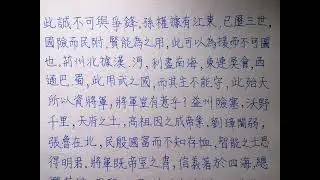 此誠不可與爭鋒.孫權據有江東,已歷三世,
國險而民附,賢能為之用,此可以為援而不可圖
也.荊州北據漢.沔,利盡南海,東連吳會,西
通巴.蜀,此用武之國,而其主不能守,此殆天
所以資將軍,將軍豈有意乎?益州險塞,沃野
千里,天府之土,高祖因之成帝業.劉璋闇弱,
張魯在北,民殷國富而不知存恤,智能之士思
得明君.將軍既帝室之冑,信義著於四海,總